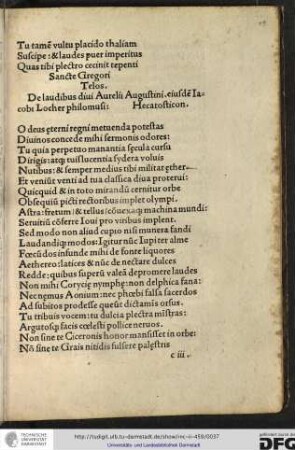 Tu tamē vultu placido thaliam
Suscipe: & laudes puer imperitus
Quas tibi plectro cecinit tepenti
Sancte Gregori
Telos.
De laudibus diui Aurelii Augustini. eiusdē Ia-
cobi Locher philomusi: Hecatosticon.
O deus ęterni regni metuenda potestas
Diuinos concede mihi sermonis odores:
Tu quia perpetuo manantia sęcula cursu
Dirigis: atq; tuis lucentia sydera voluis
Nutibus: & semper medius tibi militat ęther.
Et veniūt venti ad tua classica diua proterui:
Quicquid & in toto mirandū cernitur orbe
Obsequiū picti rectoribus implet olympi.
Astra: fretum: & tellus: cōuexaq; machina mundi:
Seruitiū cōferre Ioui pro viribus implent.
Sed modo non aliud cupio nisi munera fandi
Laudandiq; modos: Igitur nūc Iupiter alme
Fœcūdos infunde mihi de fonte liquores
Aethereo: latices & nūc de nectare dulces
Redde: quibus superū valeā depromere laudes
Non mihi Corycię nymphę: non delphica fana:
Nec nemus Aonium: nec phœbi falsa sacerdos
Ad subitos prodesse queūt dictamīs orsus.
Tu tribuis vocem: tu dulcia plectra mīstras:
Argutosq; facis cœlesti pollice neruos.
Non sine te Ciceronis honor mansisset in orbe:
Nō sine te Graiis nitidis fulsere palęstris
c iii.
TECHNISCHE UNIVERSITÄT DARMSTADT
http://tudigit.ulb.tu-darmstadt.de/show/inc-ii-459/0037
Universitäts- und Landesbibliothek Darmstadt
DFG